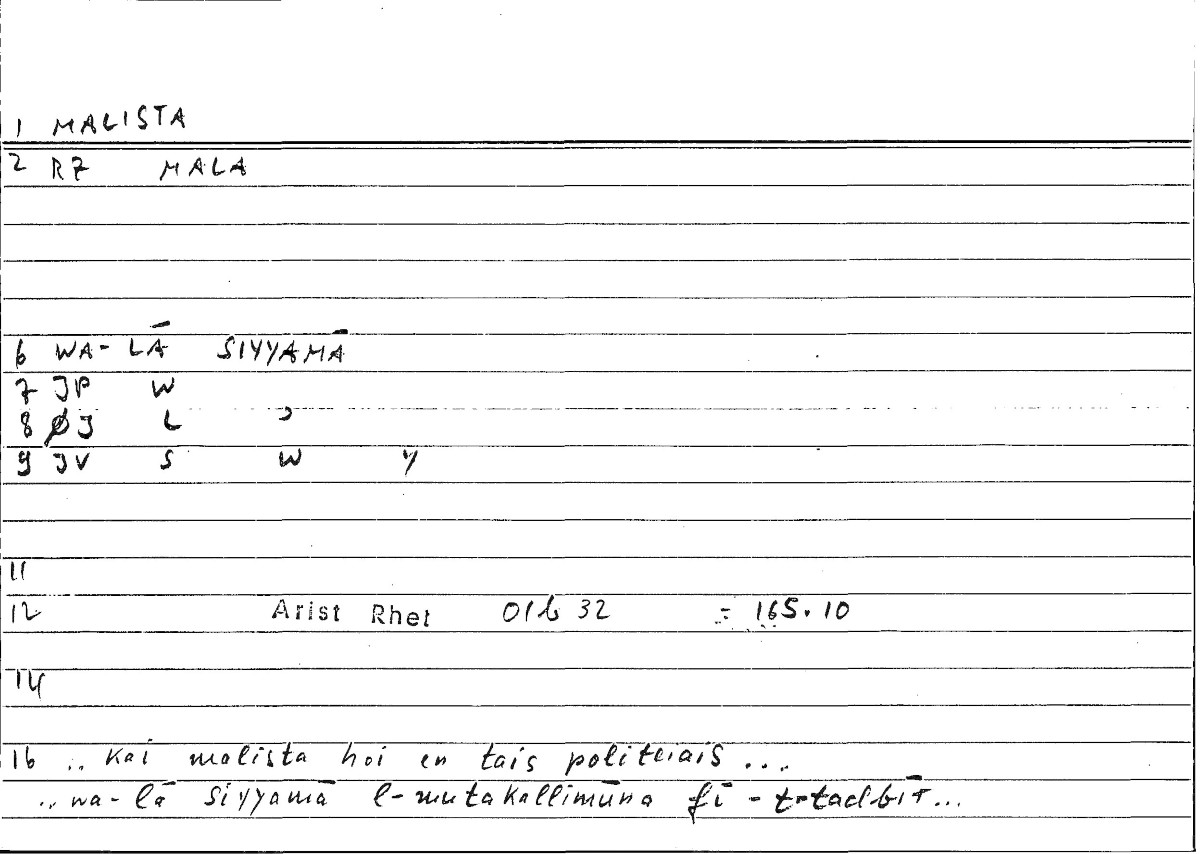 1 MALISTA
2 RZ MALA
6 WA-LĀ SIYYAMĀ
7 JP W
8 ØJ L ʾ
9 JV S W Y
11
12 Arist Rhet 01b 32 = 165.10
14
16 .. kai malista hoi en tais politeiais ...
.. wa-lā siyyamā l-mutakallimūna fī - t-tadbīr...